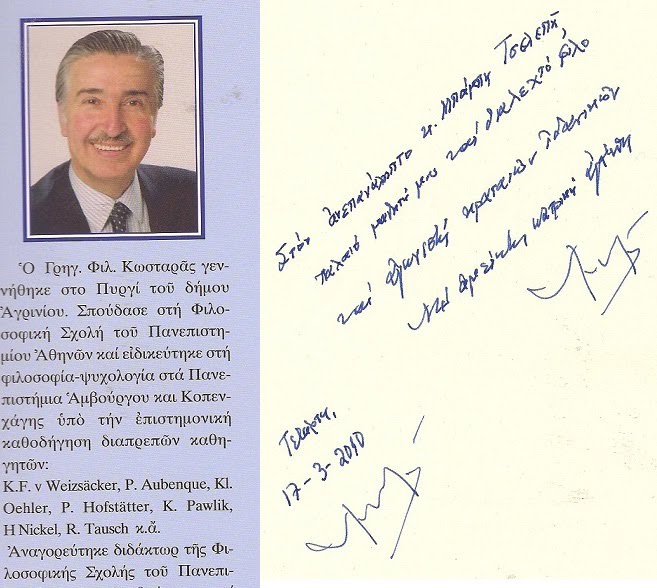 Ὁ Γρηγ. Φιλ. Κωσταρᾶς γεν-
νήθηκε στο Πυργί τοῦ δήμου
Ἀγρινίου. Σπούδασε στή Φιλο-
σοφική Σχολή τοῦ Πανεπιστη-
μίου Ἀθηνῶν καί εἰδικεύτηκε στή
φιλοσοφία-ψυχολογία στά Πανε-
πιστήμια Ἁμβούργου και Κοπεν-
χάγης ὑπό τήν ἐπιστημονική
καθοδήγηση διαπρεπῶν καθη-
γητῶν:
K.F. v Weizsäcker, P. Aubenque, Kl.
Oehler, P. Hofstätter, K. Pawlik,
H Nickel, R. Tausch κ.ἄ.
Ἀναγορεύτηκε διδάκτωρ τῆς Φι-
λοσοφικῆς Σχολῆς τοῦ Πανεπι-
Στόν ἀνεπανάληπτο κ. Μπάμπη Τσελεπῆ,
παλαιό μαθητή μου καί ἐκλεχτό φίλο
καί ἀγωνιστή κραταιῶν ἰδανικῶν
Μέ πατρική ἀγάπη
Τετάρτη,
17-3-2010